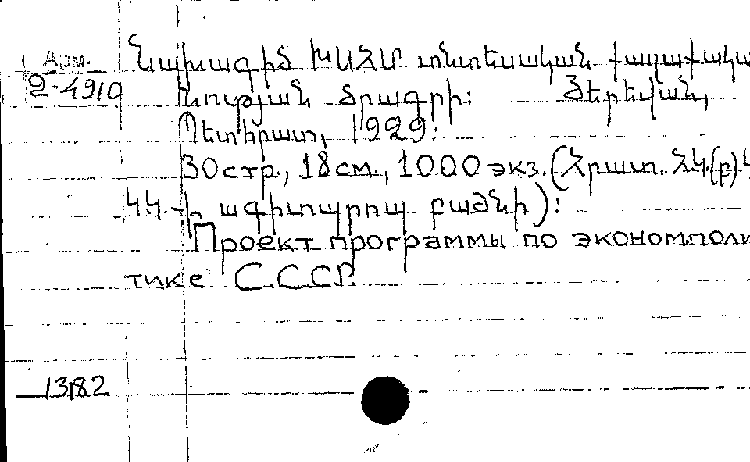 Арм.
2-4919
Նախագիծ ԽՍՀՄ տնտեսական քաղաքակա
նության ծրագրի: Յերեվան,
Պետհրատ, 1929:
30 стр., 18 см., 1000 экз. (Հրատ. ՀԿ(բ)Կ
ԿԿ-ի ագիտպրոպ բաժնի):
Проект программы по экономполи
тике С.С.С.Р.
13182